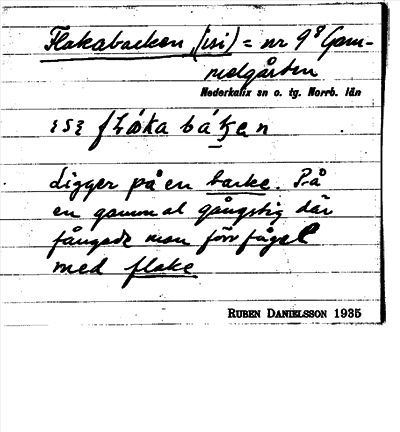 Flakabacken, (isi) = nr 9⁸ Gam-
melgården
Nederkalix sn o. tg. Norrb. län
ligger på en backe. På
en gammal gångstig där
fångade man förr fågel
med flake
RUBEN DANIELSSON 1935